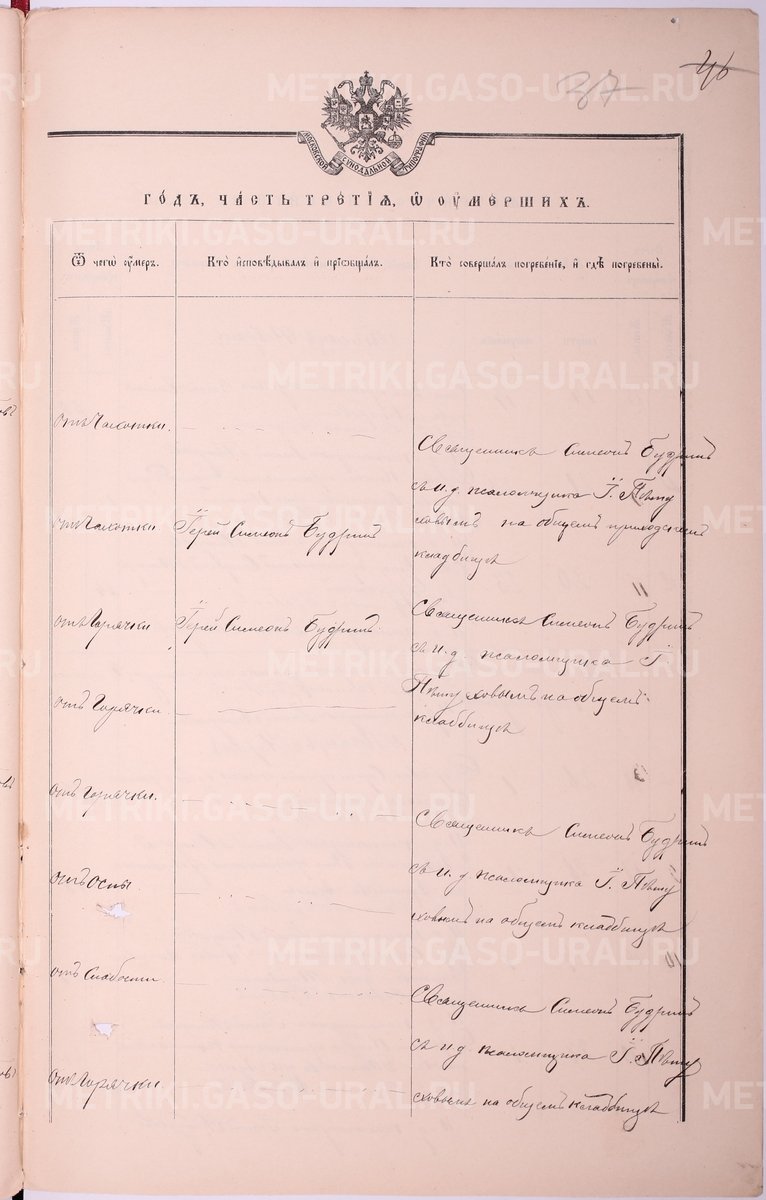 46
37
МОСКОВСКОЙ СѴНОДАЛЬНОЙ ТИПОГРАФІИ
ГОДЪ, ЧАСТЬ ТРЕТІЯ, Ѿ ОУМЕРШИХЪ.
Ѿ чегѡ оумеръ.
Кто исповѣдывалъ и пріѡбщалъ.
Кто совершалъ погребеніе, и гдѣ погребены.
отъ Чахотки.
Священникъ Симеонъ Будринъ
съ и. д. псаломщика І. Пѣту
ховымъ на общемъ приходскомъ
кладбищѣ
отъ Чахотки
Іерей Симеонъ Будринъ
отъ Горячки
Іерей Симеонъ Будринъ
Священникъ Симеонъ Будринъ
съ и. д. псаломщика І
Пѣтуховымъ на общемъ
кладбищѣ
отъ Горячки
отъ Горячки.
Священникъ Симеонъ Будринъ
съ и. д. псаломщика І. Пѣту
ховымъ на общемъ кладбищѣ
отъ Оспы.
отъ Слабости
Священникъ Симеонъ Будринъ
съ и. д. псаломщика І. Пѣту
ховымъ на общемъ кладбищѣ
отъ Горячки
METRIKI.GASO-URAL.RU